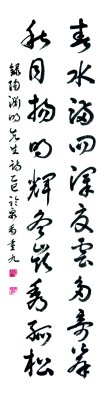 春水满四泽夏云多奇峰
秋月扬明辉冬岭秀孤松
录陶渊明先生诗乙巳